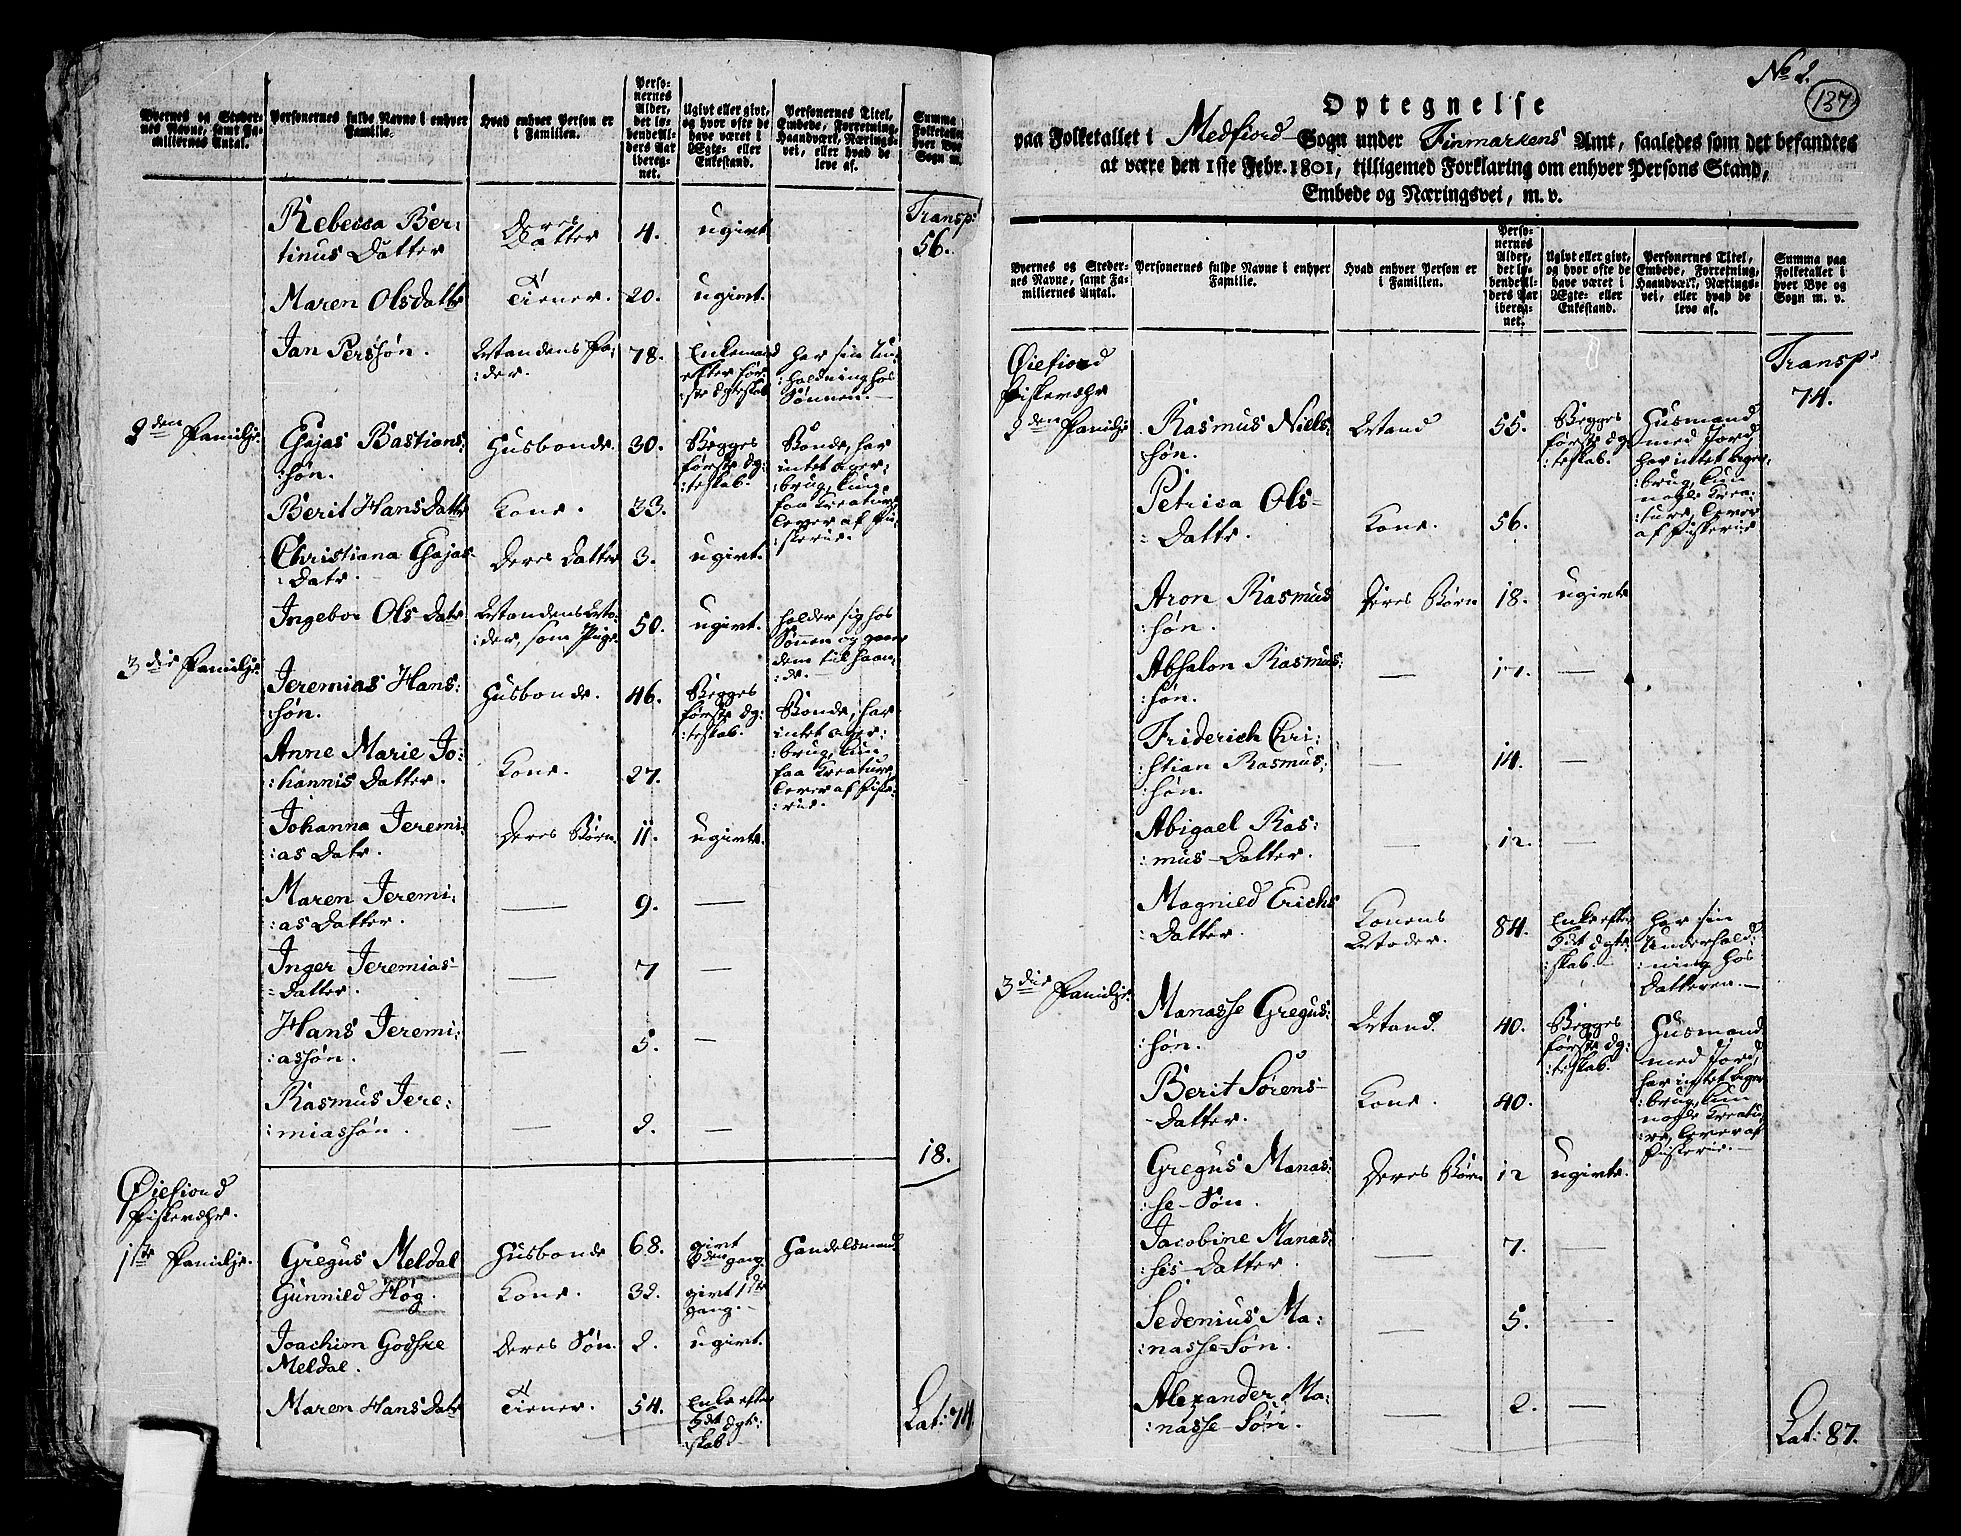 Byernes og Steder-
nes Navne, samt Fa-
miliernes Antal.
Personernes fulde Navne i enhver
Familie.
Hvad enhver Person er
i Familien.
Perso-
nernes
Alder,
det lø-
bende Al-
ders Aar
ibereg-
net.
Ugivt eller givt,
og hvor ofte de
have været i
Ægte- eller
Enkestand.
Personernes Titel,
Embede, Forretning,
Haandværk, Nærings-
vei, eller hvad de
leve af.
Summa
Folketallet
hver Bye
Sogn m.
Rebecca Ber:
tinus Datter
Deres
Datter
4.
ugivt
Transp:
56.
Maren Olsdattr
Tiener.
20.
ugivt.
Jan Perssøn.
Mandens Fa-
:der.
78.
Enkemand
efter før-
ste Ægteskab
har sin Un:
:holdning hos
Sønnen.
2den Familje.
Esajas Bastians:
:søn.
Husbonde.
30.
Begges
første Æg:
:teskab.
Bonde, har
intet ager:
:brug, kun
faa Kreature
lever af Fi:
:skerie.
Berit Hans Dattr
Kone.
33.
Christiana Esajas-
:Datr.
Deres Datter
3.
ugivt.
Ingebor Ols Datr
Mandens Mo:
:der, som Pige.
50.
ugivt.
holder sig hos
Sønnen og gaar
dem til haan:
:de.
3die Familje.
Jeremias Hans:
:søn.
Husbonde.
46.
Begges
første Æg:
:teskab.
Bonde, har
intet ager:
:brug, kun
faa Kreature
lever af Fiske:
:rie.
Anne Marie Jo:
:hannis Datter.
Kone.
27.
Johanna Jeremi:
:as Datr.
Deres Børn
11.
ugivte.
Maren Jeremi:
:as Datter.
—
9.
—
Inger Jeremias-
-Datter.
—
7
—
Hans Jeremi:
:assøn.
—
5.
—
Rasmus Jere:
:miassøn.
—
2.
—
18.
Øiefiord
Fiskevehr.
1ste Familje.
Gregus Meldal
Husbonde
68.
givt
2den gang.
Handelsmand
Gunnild Høg.
Kone.
32.
givt 1ste
gang.
Joachim Godske
Meldal.
Deres Søn.
2.
ugivt.
Maren Hans Datr
Tiener.
54.
Enke efter
1st Ægte:
:skab.
Lat: 74
No 2.
137
Optegnelse
paa Folketallet i Medfiord Sogn under Finmarkens Amt, saaledes som det befandtes
at være den 1ste Febr. 1801, tilligemed Forklaring om enhver Persons Stand,
Embede og Næringsvei, m. v.
Byernes og Steder-
nes Navne, samt Fa-
miliernes Antal.
Personernes fulde Navne i enhver
Familie.
Hvad enhver Person er
i Familien.
Perso-
nernes
Alder,
det lø-
bende Al-
ders Aar
ibereg-
net.
Ugivt eller givt,
og hvor ofte de
have været i
Ægte- eller
Enkestand.
Personernes Titel,
Embede, Forretning,
Haandværk, Nærings-
vei, eller hvad de
leve af.
Summa paa
Folketallet i
hver Bye og
Sogn m. v.
Øiefiord
Fiskevehr
Transp:
74.
2den Familje
Rasmus Niels:
:søn.
Mand
55.
Begges
første Æg:
:teskab.
Husmand
med Jord,
har intet ager:
:brug, kun
nogle Krea:
:ture, lever
af Fiskerie
Petrica Ols-
-Dattr.
Kone.
56.
Aron Rasmus
:søn.
Deres Børn
18.
ugivte
Absalon Rasmus:
:søn.
—
17.
—
Friderich Chri:
:stian Rasmus:
:søn.
—
14.
—
Abigael Ras:
:mus-Datter.
—
12.
—
Magnild Erichs
:Datter.
Konens
Moder.
84.
Enke efter
1st Ægte:
:skab.
har sin
Underhold:
:ning hos
Datteren.
3die Familje.
Manasse Gregus:
:søn.
Mand.
40.
Begges
første Æg:
:teskab.
Husmand
med Jord,
har intet ager
:brug, kun
nogle Kreatu:
:re, lever af
Fiskerie.
Berit Sørens-
-Datter.
Kone.
40.
Gregus Manas:
:se-Søn.
Deres Børn
12
ugivte.
Jacobine Manas:
:ses-Datter.
—
7.
—
Sedenius Ma:
:nasse-Søn.
—
5.
—
Alexander Ma:
:nasse-Søn.
—
2.
—
Lat: 87.